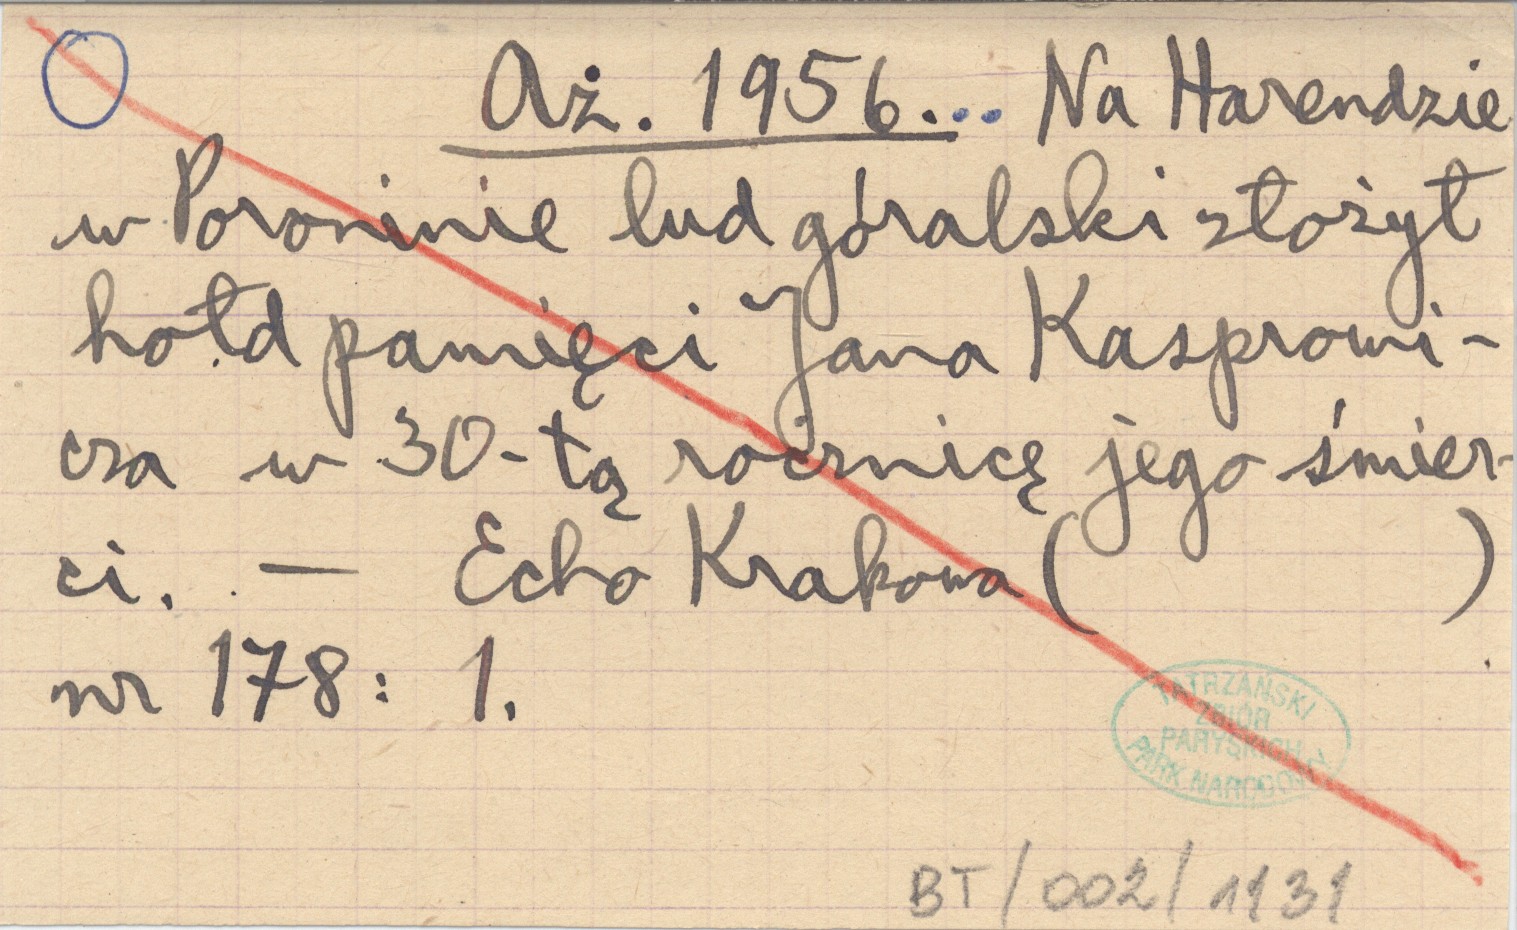 Aż. 1956... Na Harendzie
w Poroninie lud góralski złożył
hołd pamięci Jana Kasprowi-
cza w 30-tą rocznicę jego śmier-
ci. — Echo Krakowa ( )
nr 178: 1.
TATRZAŃSKI
ZBIÓR
PARYSKICH
PARK NARODOWY
BT/002/1131